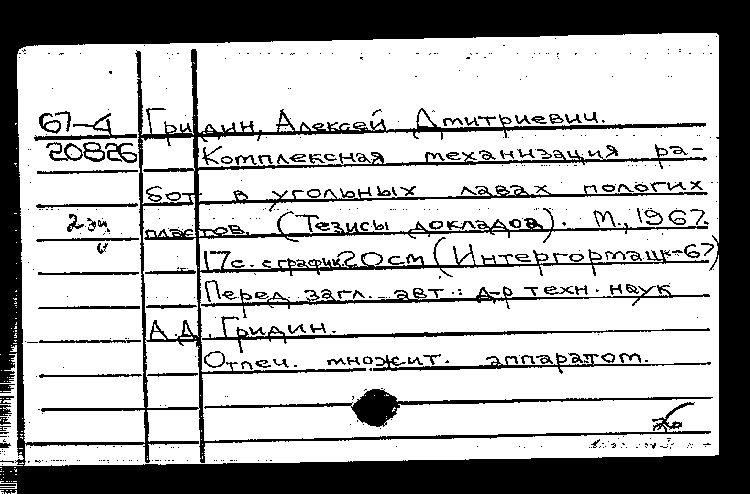 67-4 Гридин, Алексей Дмитриевич.
20826 Комплексная механизация ра-
бот в угольных лавах пологих
2 эк пластов. (Тезисы докладов). М., 1967.
17с. с график 20см (Интергормаш-67)
Перед загл. авт.: д-р техн. наук
А.Д. Гридин.
Отпеч. множит. аппаратом.